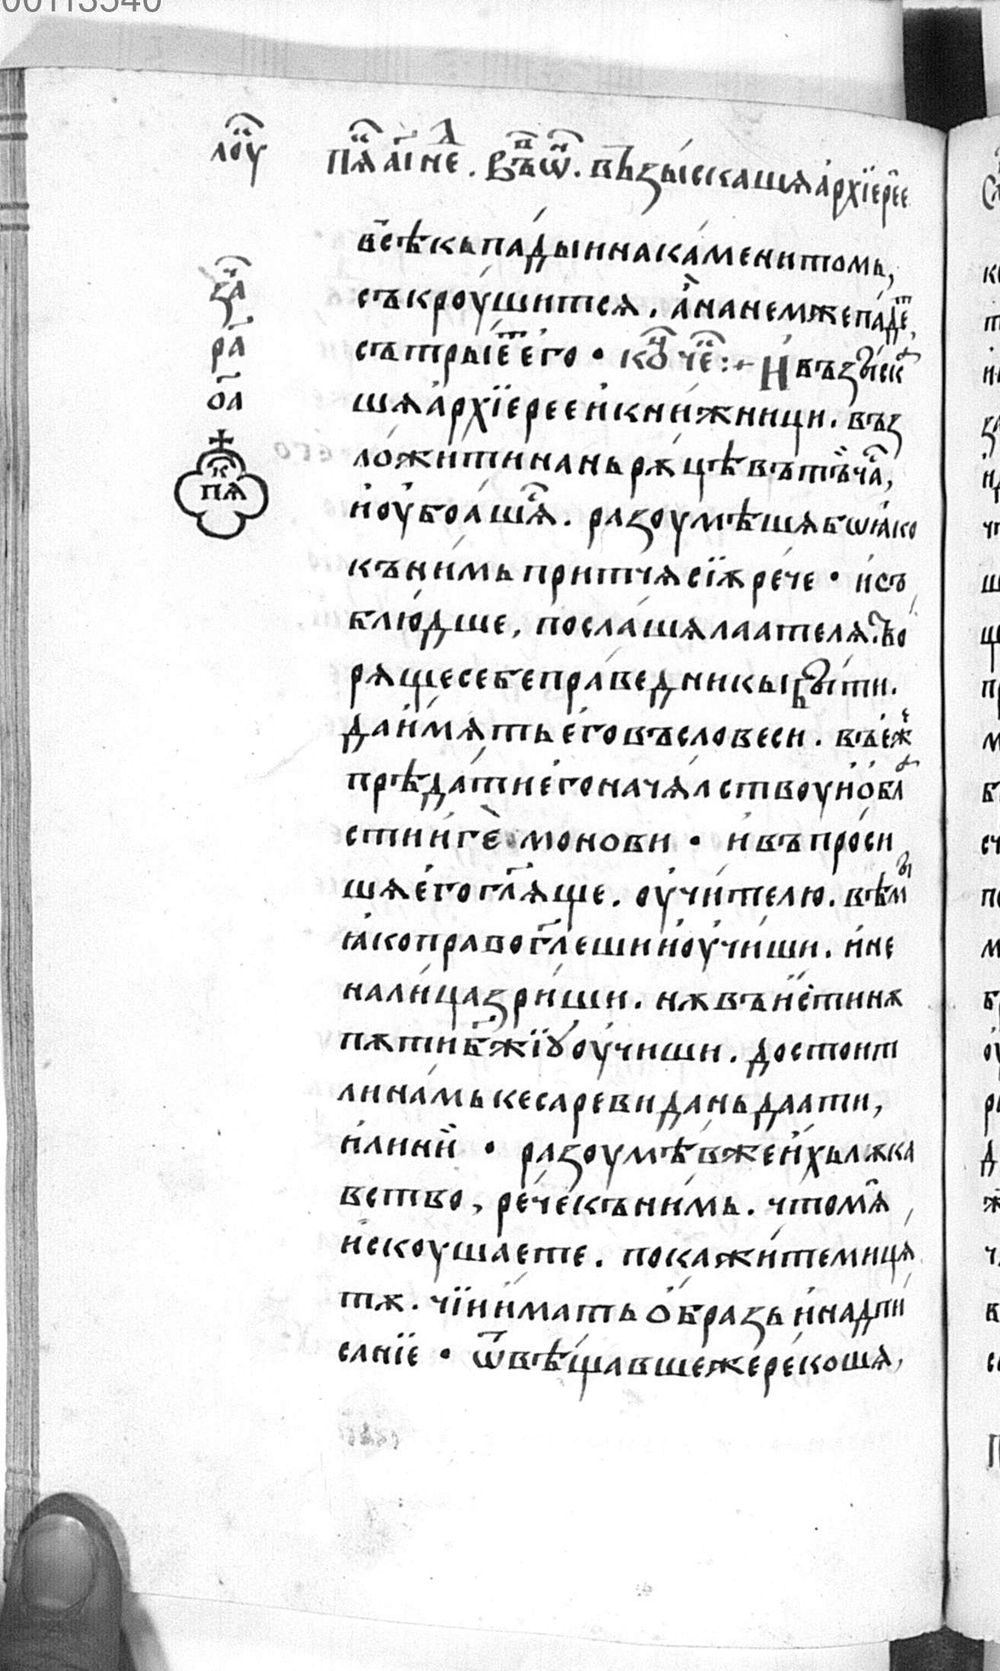 00113540
лоу҃ пѧ҃ а҃і не҃д . във҃ ѿ . възыскашѧ а҆рхїере́е
всѣкь пады́и на ка́менитомь,
съкроу́шитсѧ . а҆ на немже паде́т,
сътрыет є҆го̀ • ко҃ч че҃ :~ И възыска
шѧ а҆рхїерее и҆ книжници . въз
за҃ч
ло́жити на нь рѫцѣ въ тъ ча҃с,
ра҃
и҆ оу҆боа́шѧс . разоумѣшѧ бѡ ꙗ҆ко
ѻ҃а
къ ни́мь притчѧ сїѫ рече • и҆ съ
к҃
пѧ
блю́дше, посла́шѧ лаателѧ . тво
рѧще себе праведникы быти .
да и҆мѧть є҆го въ словеси . въ е҆ж
прѣда́ти є҆го начѧлствоу и҆ ѻ҆бла
сти и҆ге҆монови • и҆ въпроси
шѧ є҆го гл҃ѧще . оу҆чи́телю . вѣмы
ꙗ҆ко право гл҃еши и҆ оу҆чиши . и҆ не
на лица зри́ши . нѫ въ и҆стинѫ
пѫти бж҃їꙋ оу҆чиши . достоит
ли на́мь кесареви дань даати,
и҆ли ни̏ • разоумѣв же и҆хь лѫка
вство, рече къ нимь . что мѧ
и҆скоушаете . покажи́те ми цѧ
тѫ . чїи и҆мать ѻ҆бразь и҆ надпи
сание • ѿвѣщавше же реко́шѧ,